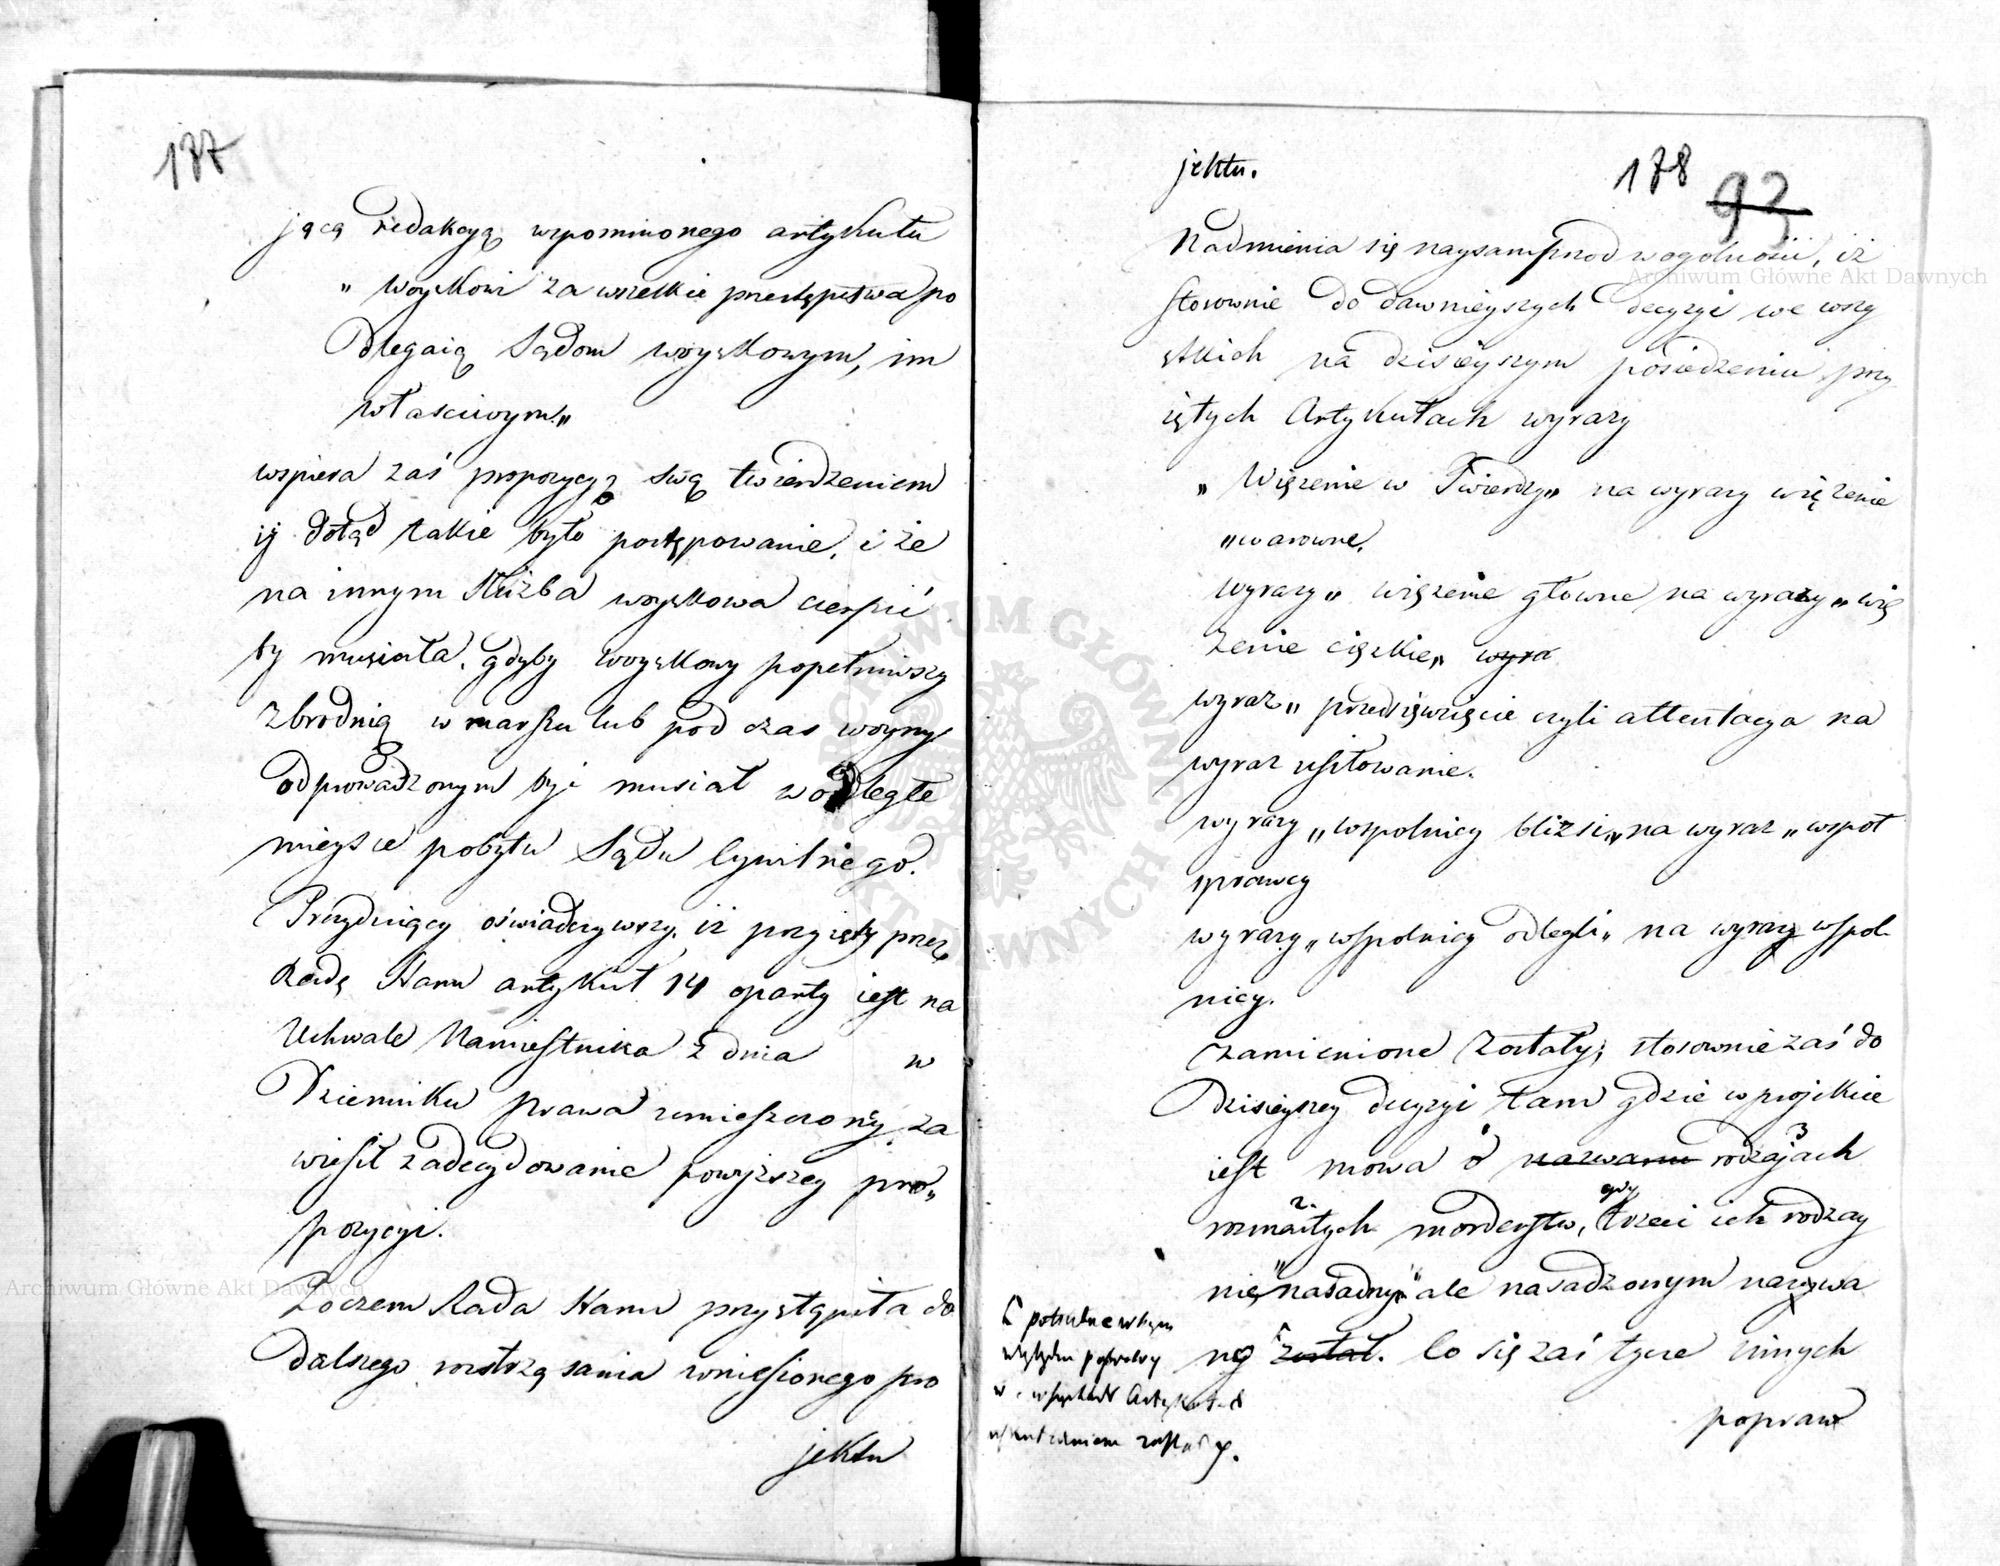 177
jącą redakcyą wspomnionego artykułu
„ Woyskowi za wszelkie przestępstwa po
dlegaią Sądom woyskowym, im
właściwym„
wspiera zaś propozycyą swą twierdzeniem
iż dotąd takie było postępowanie, i że
na innym Służba woyskowa cierpieć
by musiała, gdyby woyskowy popełniwszy
zbrodnią w marszu lub pod czas woyny
odprowadzonym być musiał w odległe
mieysce pobytu Sądu Cywilnego.
Prezyduiący oświadczywszy, iż przyięty przez
Radę Stanu artykuł 14 oparty iest na
Uchwale Namiestnika z dnia w
Dzienniku prawa umieszczoney, za
wiesił zadecydowanie powyższey pro„
pozycyi.
Poczem Rada Stanu przystąpiła do
dalszego roztrząsania wniesionego pro
jektu
178
93
jektu.
Nadmienia się naysamprzod w ogolności, iż
stosownie do dawnieyszych decyzyi we wszy
stkich na dzisieyszym posiedzeniu przy
iętych Artykułach wyrazy
„ Więzienie w Twierdzy„ na wyrazy więzienie
„warowne.
wyrazy„ więzienie główne na wyrazy „wię
zienie ciężkie„ wyra
wyraz„ przedsięwzięcie czyli attentacya na
wyraz usiłowanie.
wyrazy „wspolnicy bliżsi„ na wyraz „wspoł
sprawcy
wyrazy „wspolnicy odlegli„ na wyrazy wspol
nicy.
zamienione zostały, stosownie zaś do
dzisieyszey decyzyi tam gdzie w projekcie
iest mowa o nazwaniu rodzajach 3
rozmaitych 2 morderstw, gdy trzeci ich rodzay
nie „nasadnym“ ale nasadzonym nazywa
ny został. Co się zaś tycze innych
popraw
potrzebne w tym
względzie poprawy
w wszystkich Artykułach
uskutecznione zostały.
Archiwum Główne Akt Dawnych
Archiwum Główne Akt Dawnych
ARCHIWUM GŁÓWNE AKT DAWNYCH